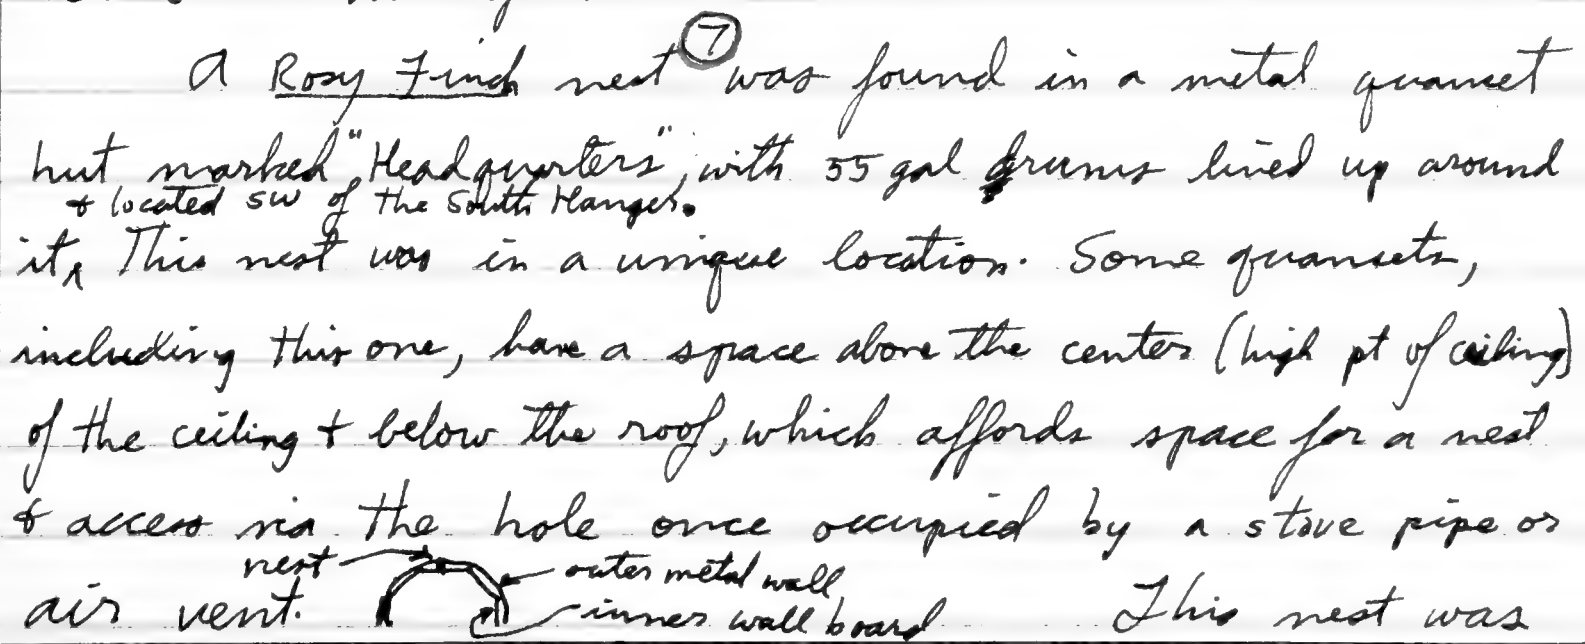 A Rosy Finch nest ⑦ was found in a metal quanset
hut marked "Headquarters", with 55 gal drums lined up around
& located SW of the South Hanger.
it^ This nest was in a unique location. Some quansets,
including this one, have a space above the center (high pt of ceiling)
of the ceiling & below the roof, which affords space for a nest
& access via the hole once occupied by a stove pipe or
nest outer metal wall
air vent. inner wall board This nest was